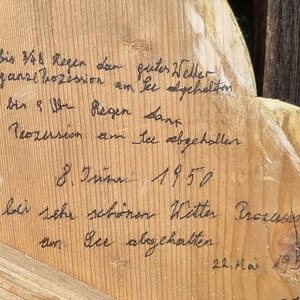 bis 3/4 8 Regen dan gutes Wetter
ganze Prozession am See abgehalten
bis 9 Uhr Regen dan
Prozession am See abgehalten
8. Juni 1950
bei sehr schönen Wetter Prozession
am See abgehalten
22. Mai 19